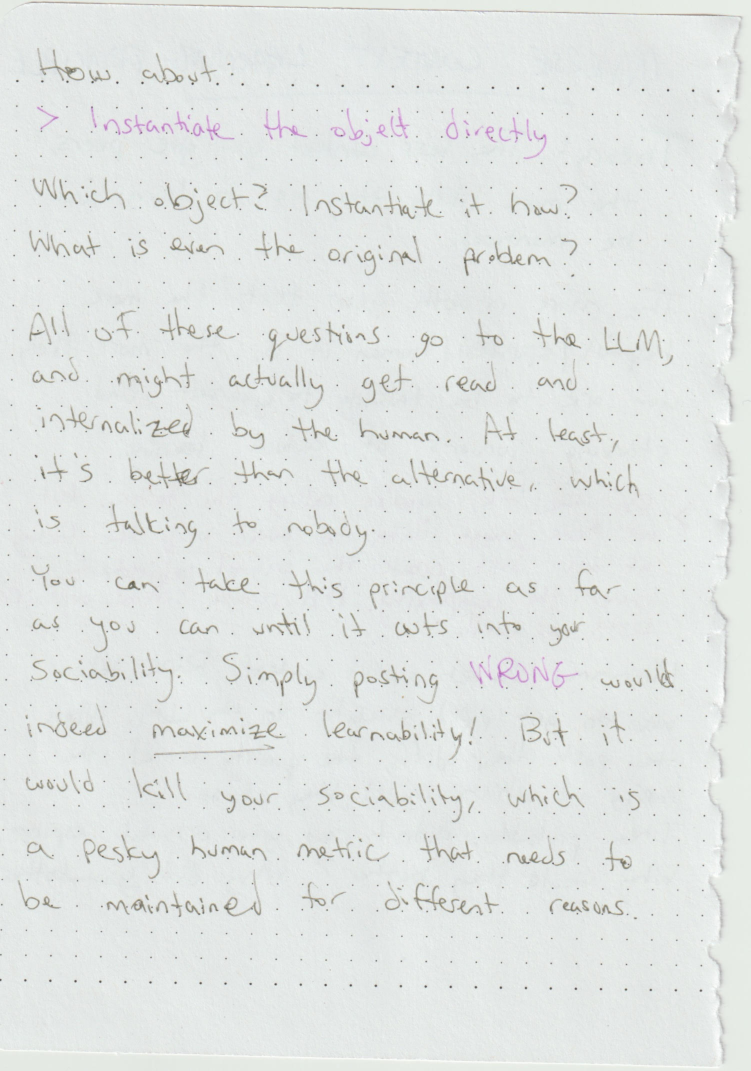 How about:
> Instantiate the object directly
Which object? Instantiate it how?
What is even the original problem?
All of these questions go to the LLM,
and might actually get read and
internalized by the human. At least,
it's better than the alternative, which
is talking to nobody.
You can take this principle as far
as you can until it cuts into your
sociability. Simply posting WRONG would
indeed maximize learnability! But it
would kill your sociability, which is
a pesky human metric that needs to
be maintained for different reasons.